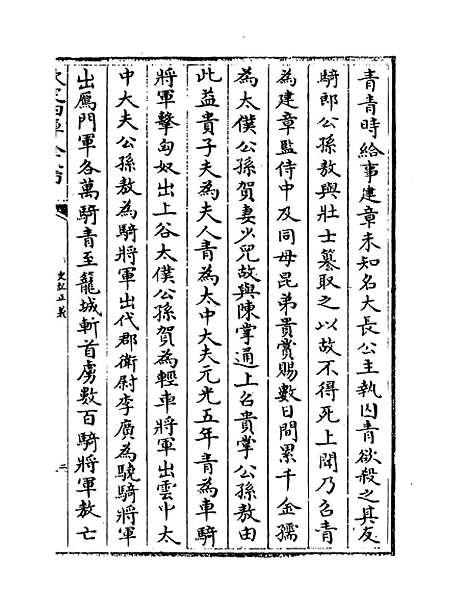 青青時給事建章未知名大長公主執囚青欲殺之其友
騎郎公孫敖與壯士篡取之以故不得死上聞乃召青
為建章監侍中及同母昆弟貴賞賜數日間累千金孺
為太僕公孫賀妻少兒故與陳掌通上召貴掌公孫敖由
此益貴子夫為夫人青為太中大夫元光五年青為車騎
將軍擊匈奴出上谷太僕公孫賀為輕車將軍出雲中太
中大夫公孫敖為騎將軍出代郡衛尉李廣為驍騎將軍
出鴈門軍各萬騎青至蘢城斬首虜數百騎將軍敖亡
史記正義
二